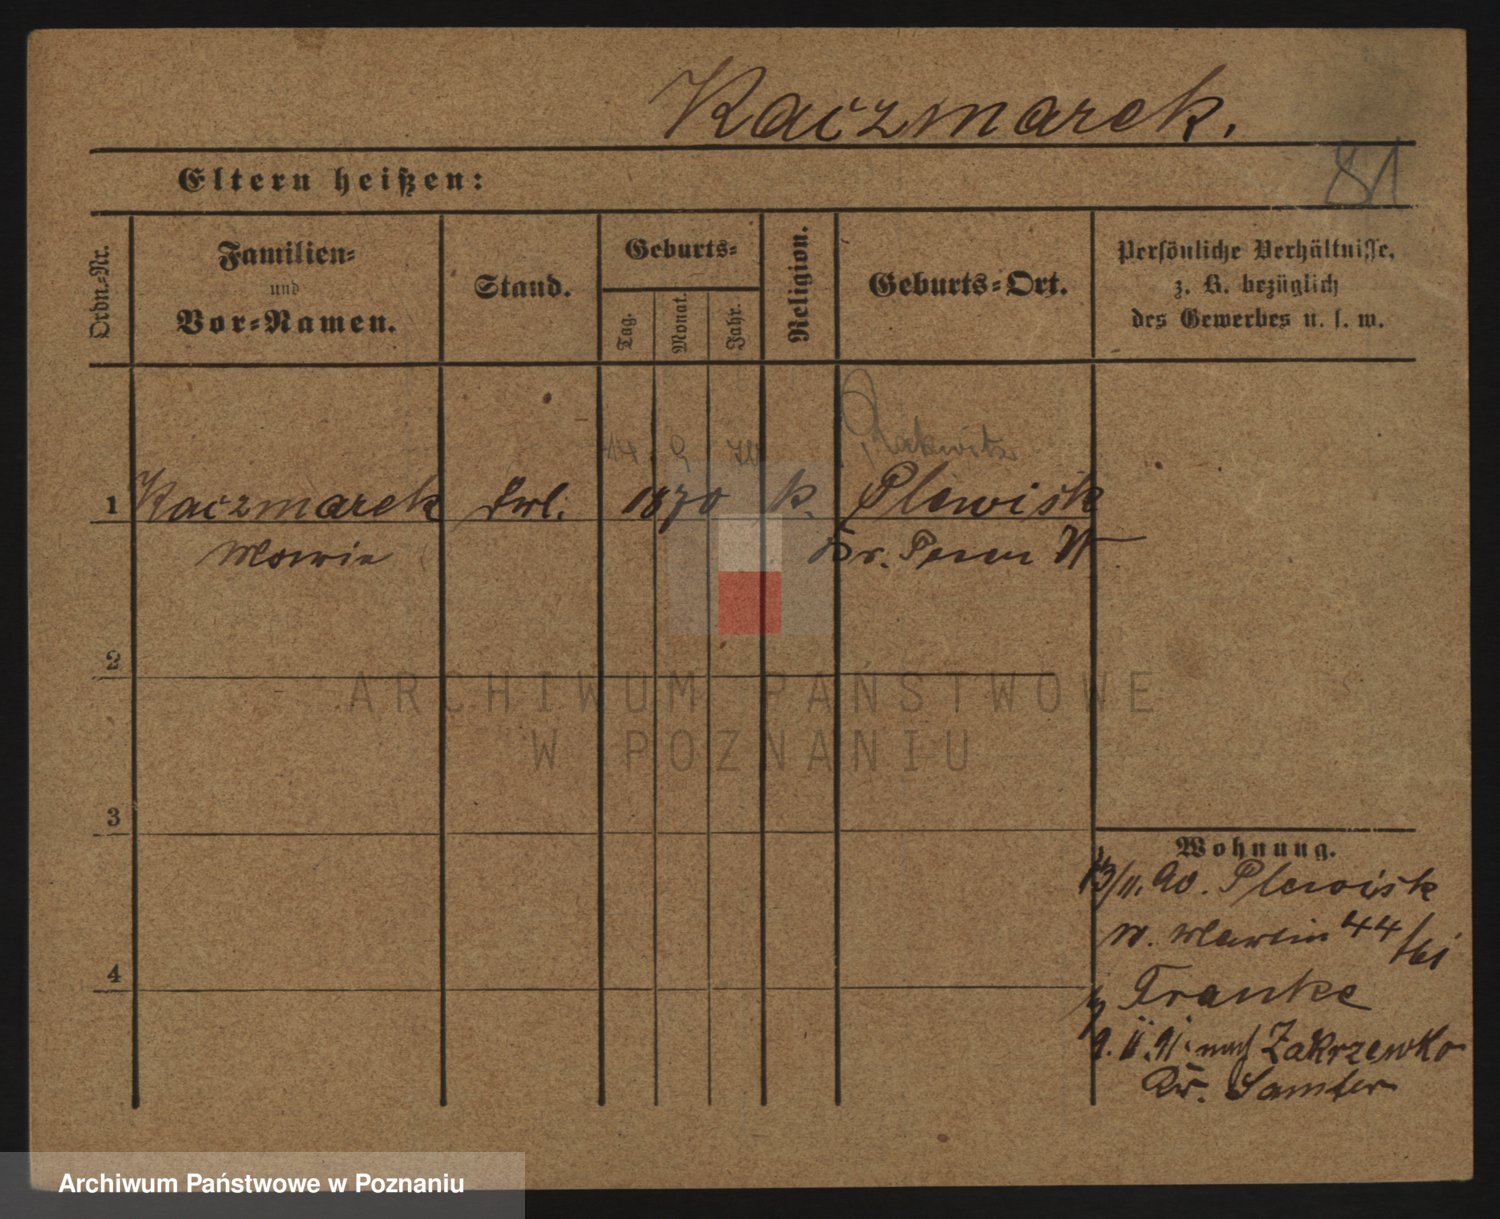 Kaczmarek.
81
Eltern heißen:
Ordn.-Nr.
Familien-
und
Vor-Namen.
Stand.
Geburts-
Tag.
Monat.
Jahr.
Religion.
Geburts-Ort.
Persönliche Verhältnisse,
z. B. bezüglich
des Gewerbes u. s. w.
1 Kaczmarek 1870 k. Plewisk
Marie Kr. Posen W
2
3
4
Wohnung.
13/11. 90. Plewisk
n. Martin 44
Franke
9. 11. 91. nach Zakrzewko
Kr. Samter
ARCHIWUM PAŃSTWOWE
W POZNANIU
Archiwum Państwowe w Poznaniu